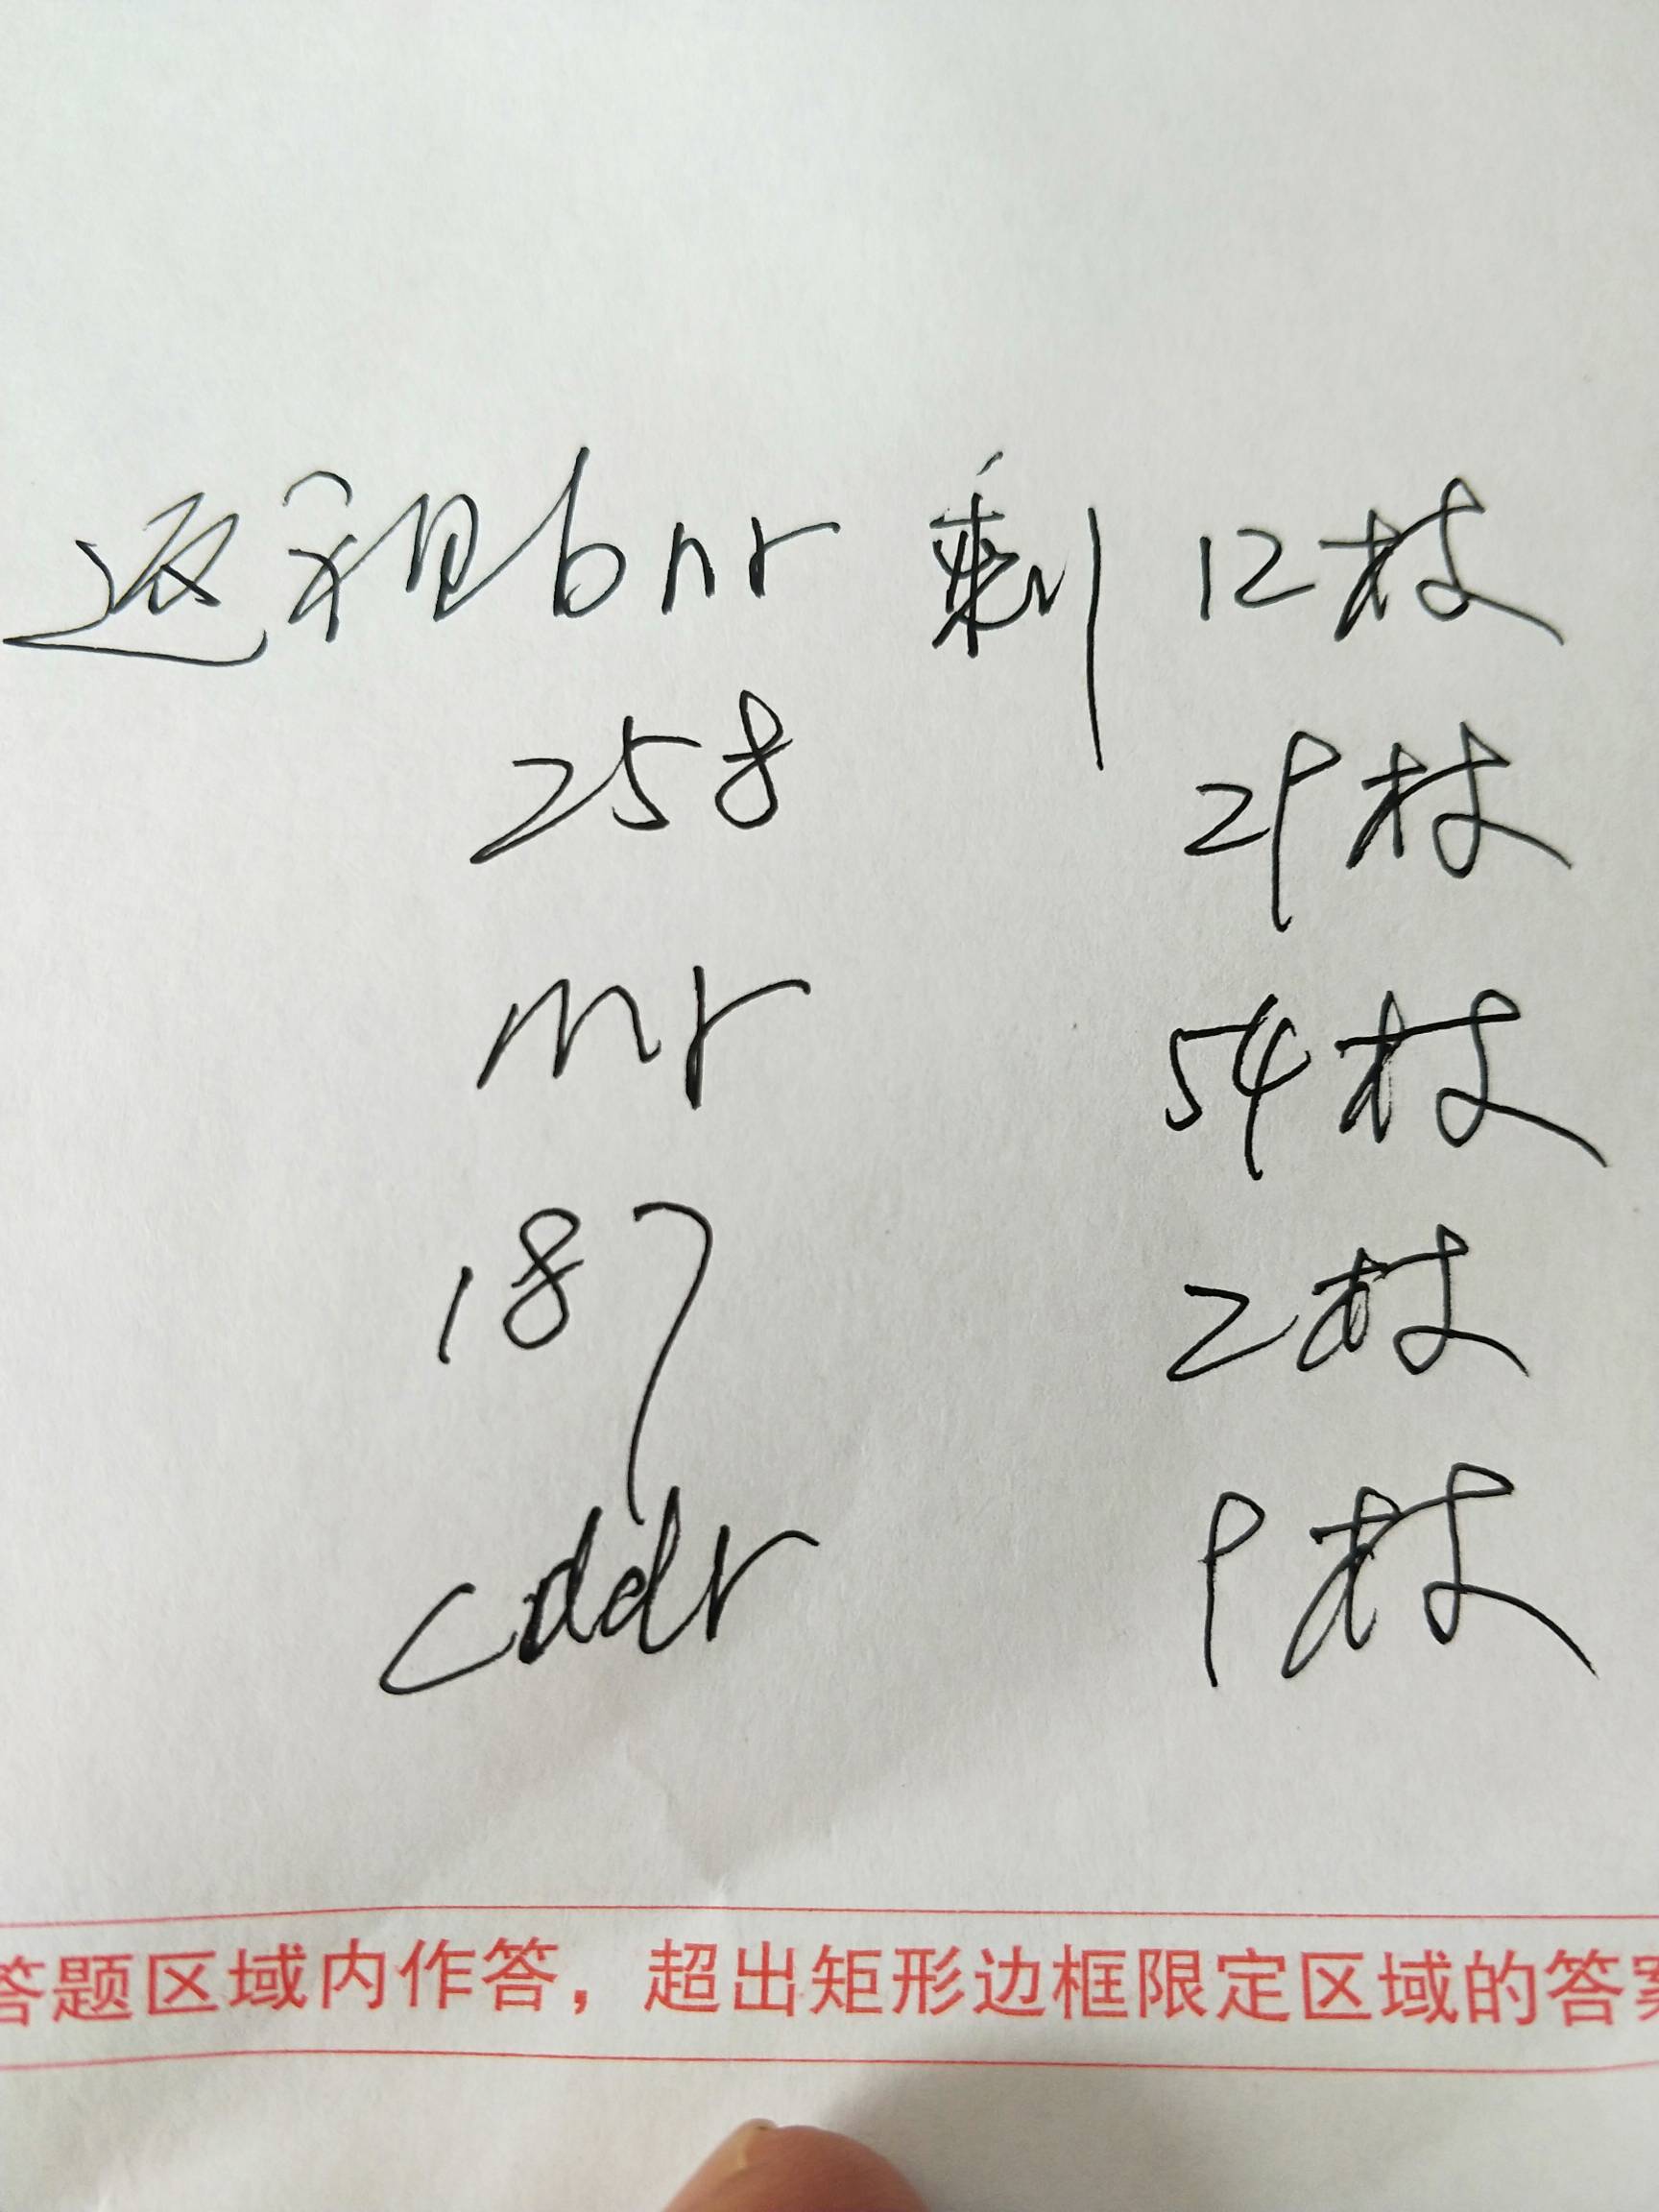 返租bnr 剩 12枝
258 29枝
mr 54枝
187 2枝
cddr 9枝
答题区域内作答，超出矩形边框限定区域的答案